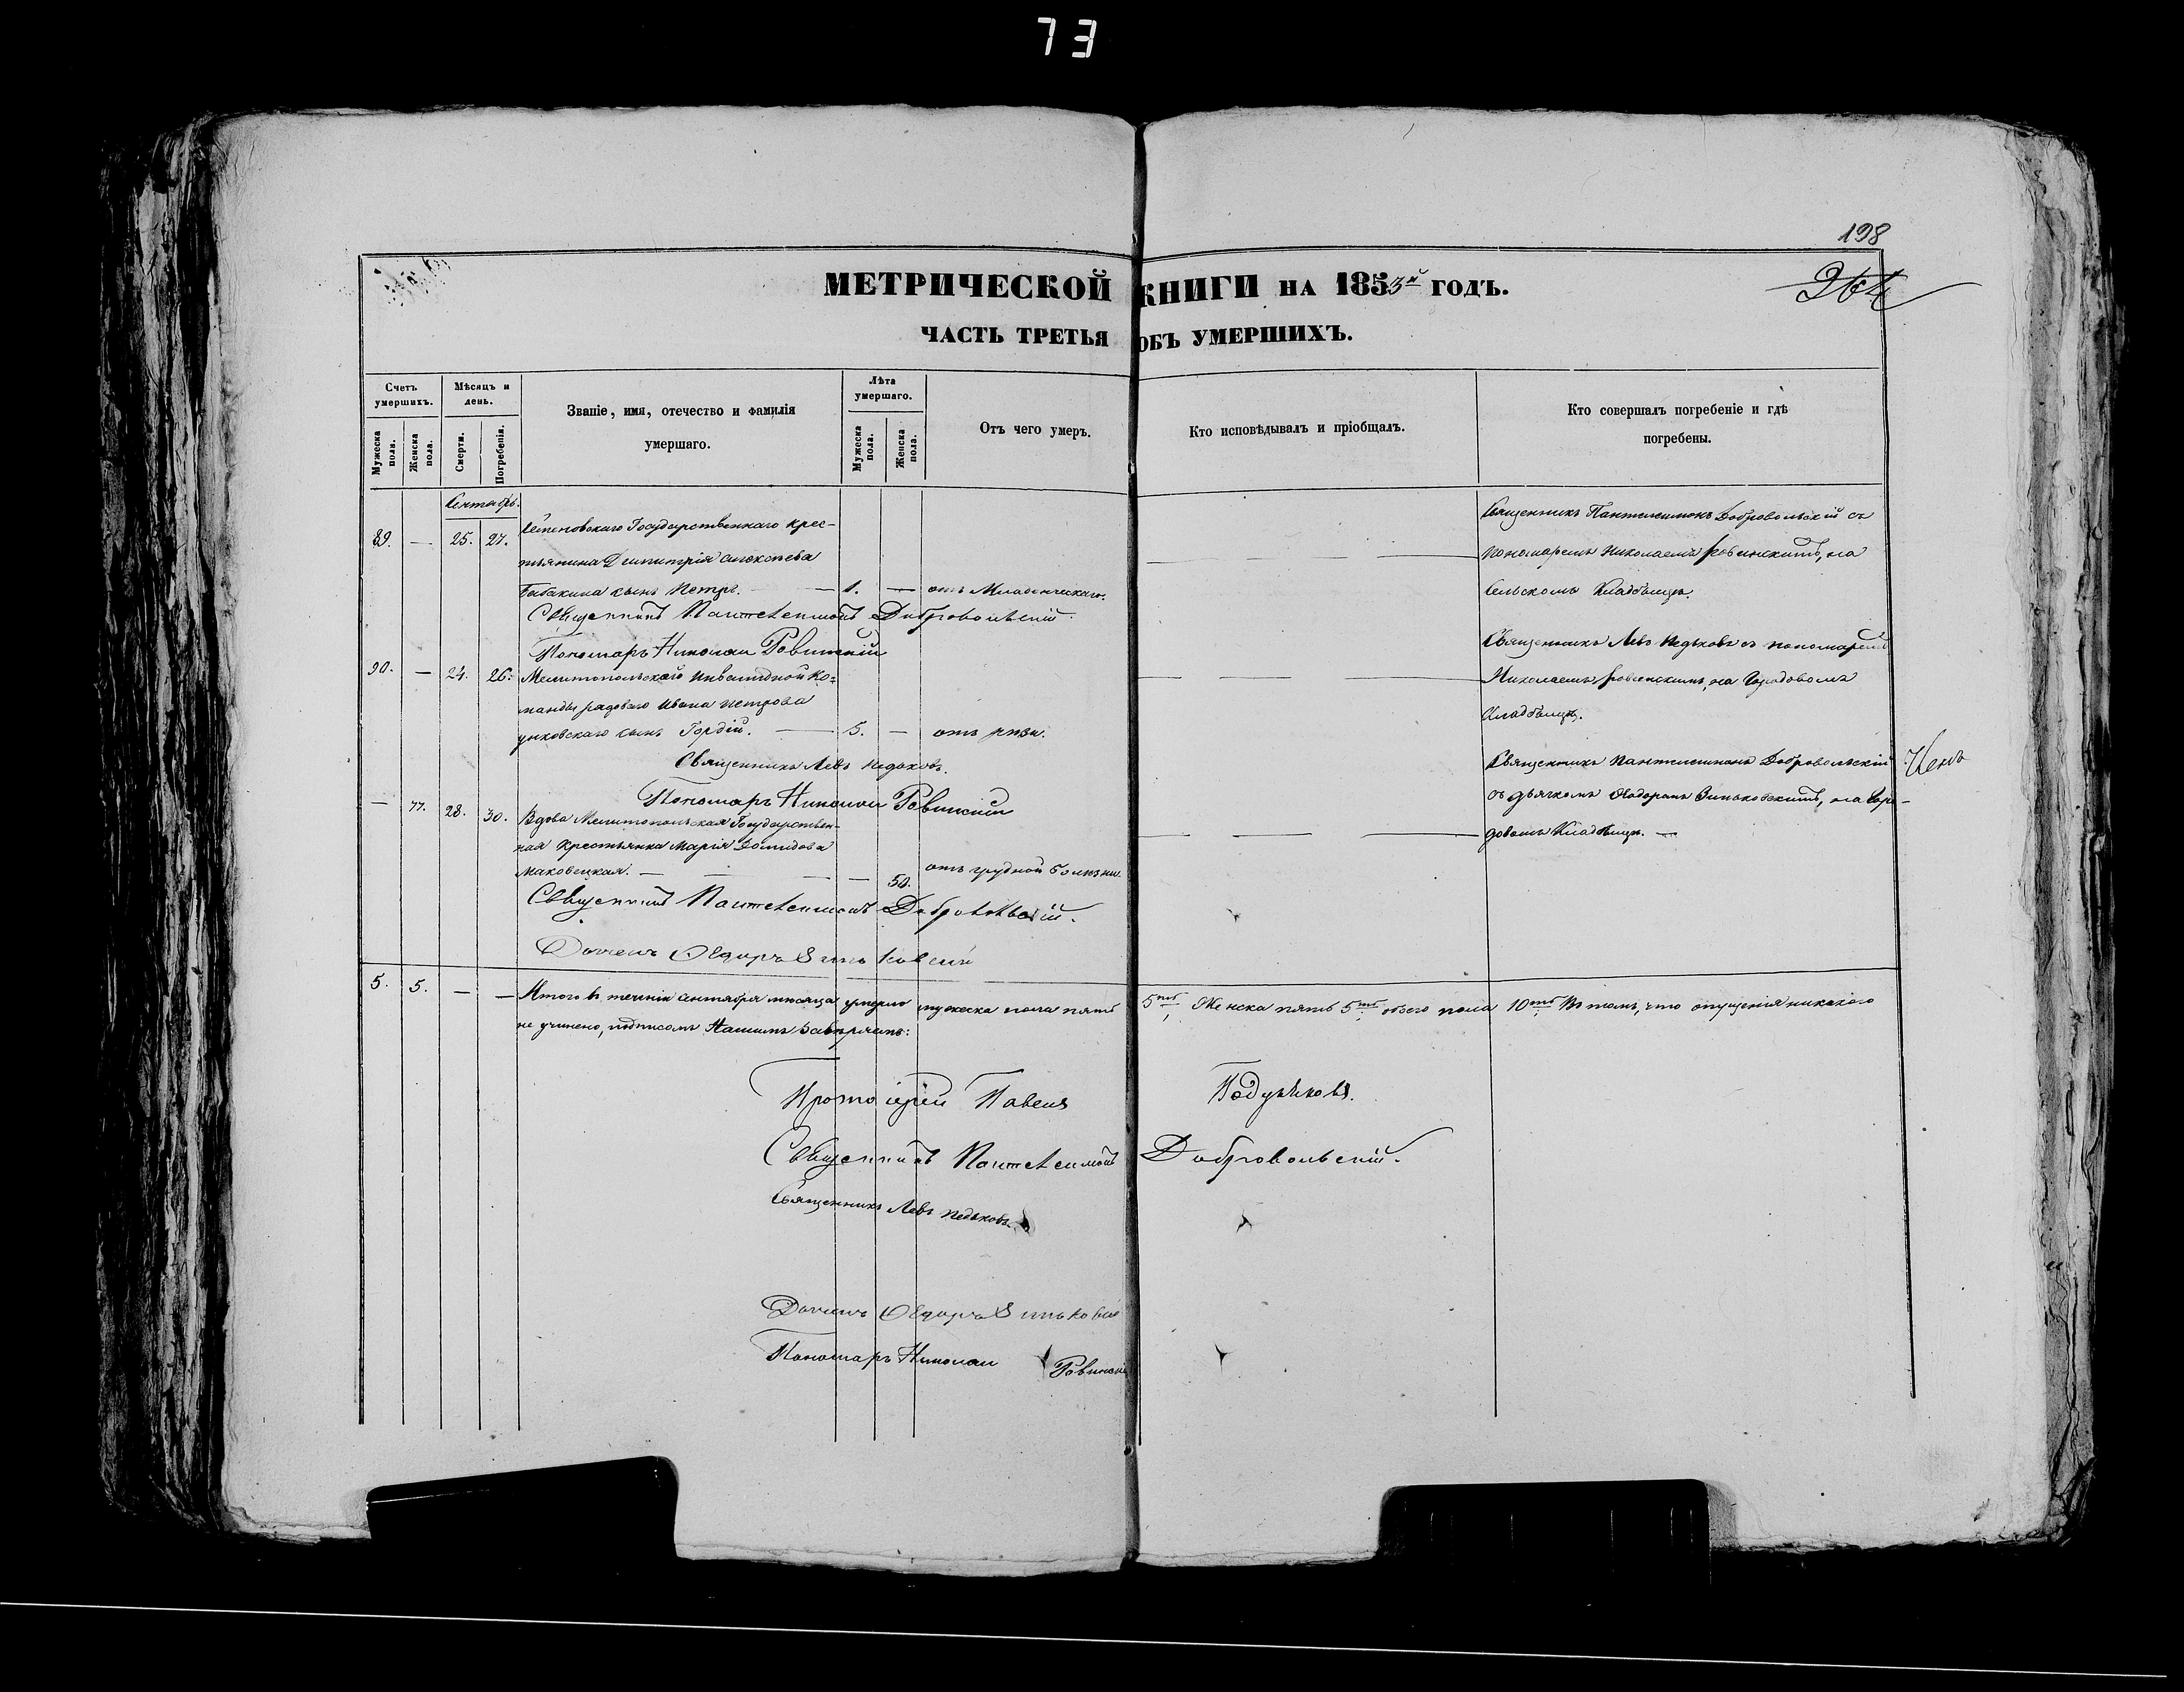 73
198
264
МЕТРИЧЕСКОЙ КНИГИ НА 1853й ГОДЪ.
ЧАСТЬ ТРЕТЬЯ ОБЪ УМЕРШИХЪ.
Счетъ умершихъ.
Мужеска пола.
Женска пола.
Мѣсяцъ и день.
Смерти.
Погребенія.
Званіе, имя, отечество и фамилія
умершаго.
Лѣта умершаго.
Мужеска пола.
Женска пола.
Отъ чего умеръ.
Кто исповѣдывалъ и пріобщалъ.
Кто совершалъ погребеніе и гдѣ
погребены.
Сентябрь.
89. — 25. 27. Семеновскаго Государственнаго крес-
тьянина Димитрія Алексѣева
сынъ Петръ. — 1. — отъ Младенческаго.
Священникъ Пантелеимонъ Добровольскій.
Пономарь Николай Ровинскій
Священникъ Пантелеимонъ Добровольскій съ
пономаремъ Николаемъ Ровинскимъ, на
сельскомъ Кладбищѣ.
90. — 24. 26. Мелитопольской Инвалидной Ко=
манды рядоваго Ивана Петрова
сынъ Гордій. — 5. — отъ
Священникъ Левъ Педьковъ.
Пономарь Николай Ровинскій
Священникъ Левъ Педьковъ съ пономаремъ
Николаемъ Ровинскимъ, на Городовомъ
Кладбищѣ.
— 77. 28. 30. Вдова Мелитопольская Государствен-
ная Крестьянка Марія Домидова
Маковецкая. — — — — 50. отъ грудной болѣзни.
Священникъ Пантелеимонъ Добровольскій.
Дьячекъ Ѳедоръ Зиньковскій
Священникъ Пантелеимонъ Добровольскій
съ дьячкомъ Ѳедоромъ Зиньковскимъ, на Горо-
довомъ Кладбищѣ. —
5. 5. — — Итого въ теченіи сентября мѣсяца умерло мужеска пола пять 5ть, Женска пять 5ть, обоего пола 10ть Въ томъ, что опущенія никакого
не учинено, подписомъ Нашимъ завѣряемъ:
Протоіерей Павелъ
Священникъ Пантелеимонъ Добровольскій.
Священникъ Левъ Педьковъ.
Дьячекъ Ѳедоръ Зиньковскій
Пономарь Николай Ровинскій